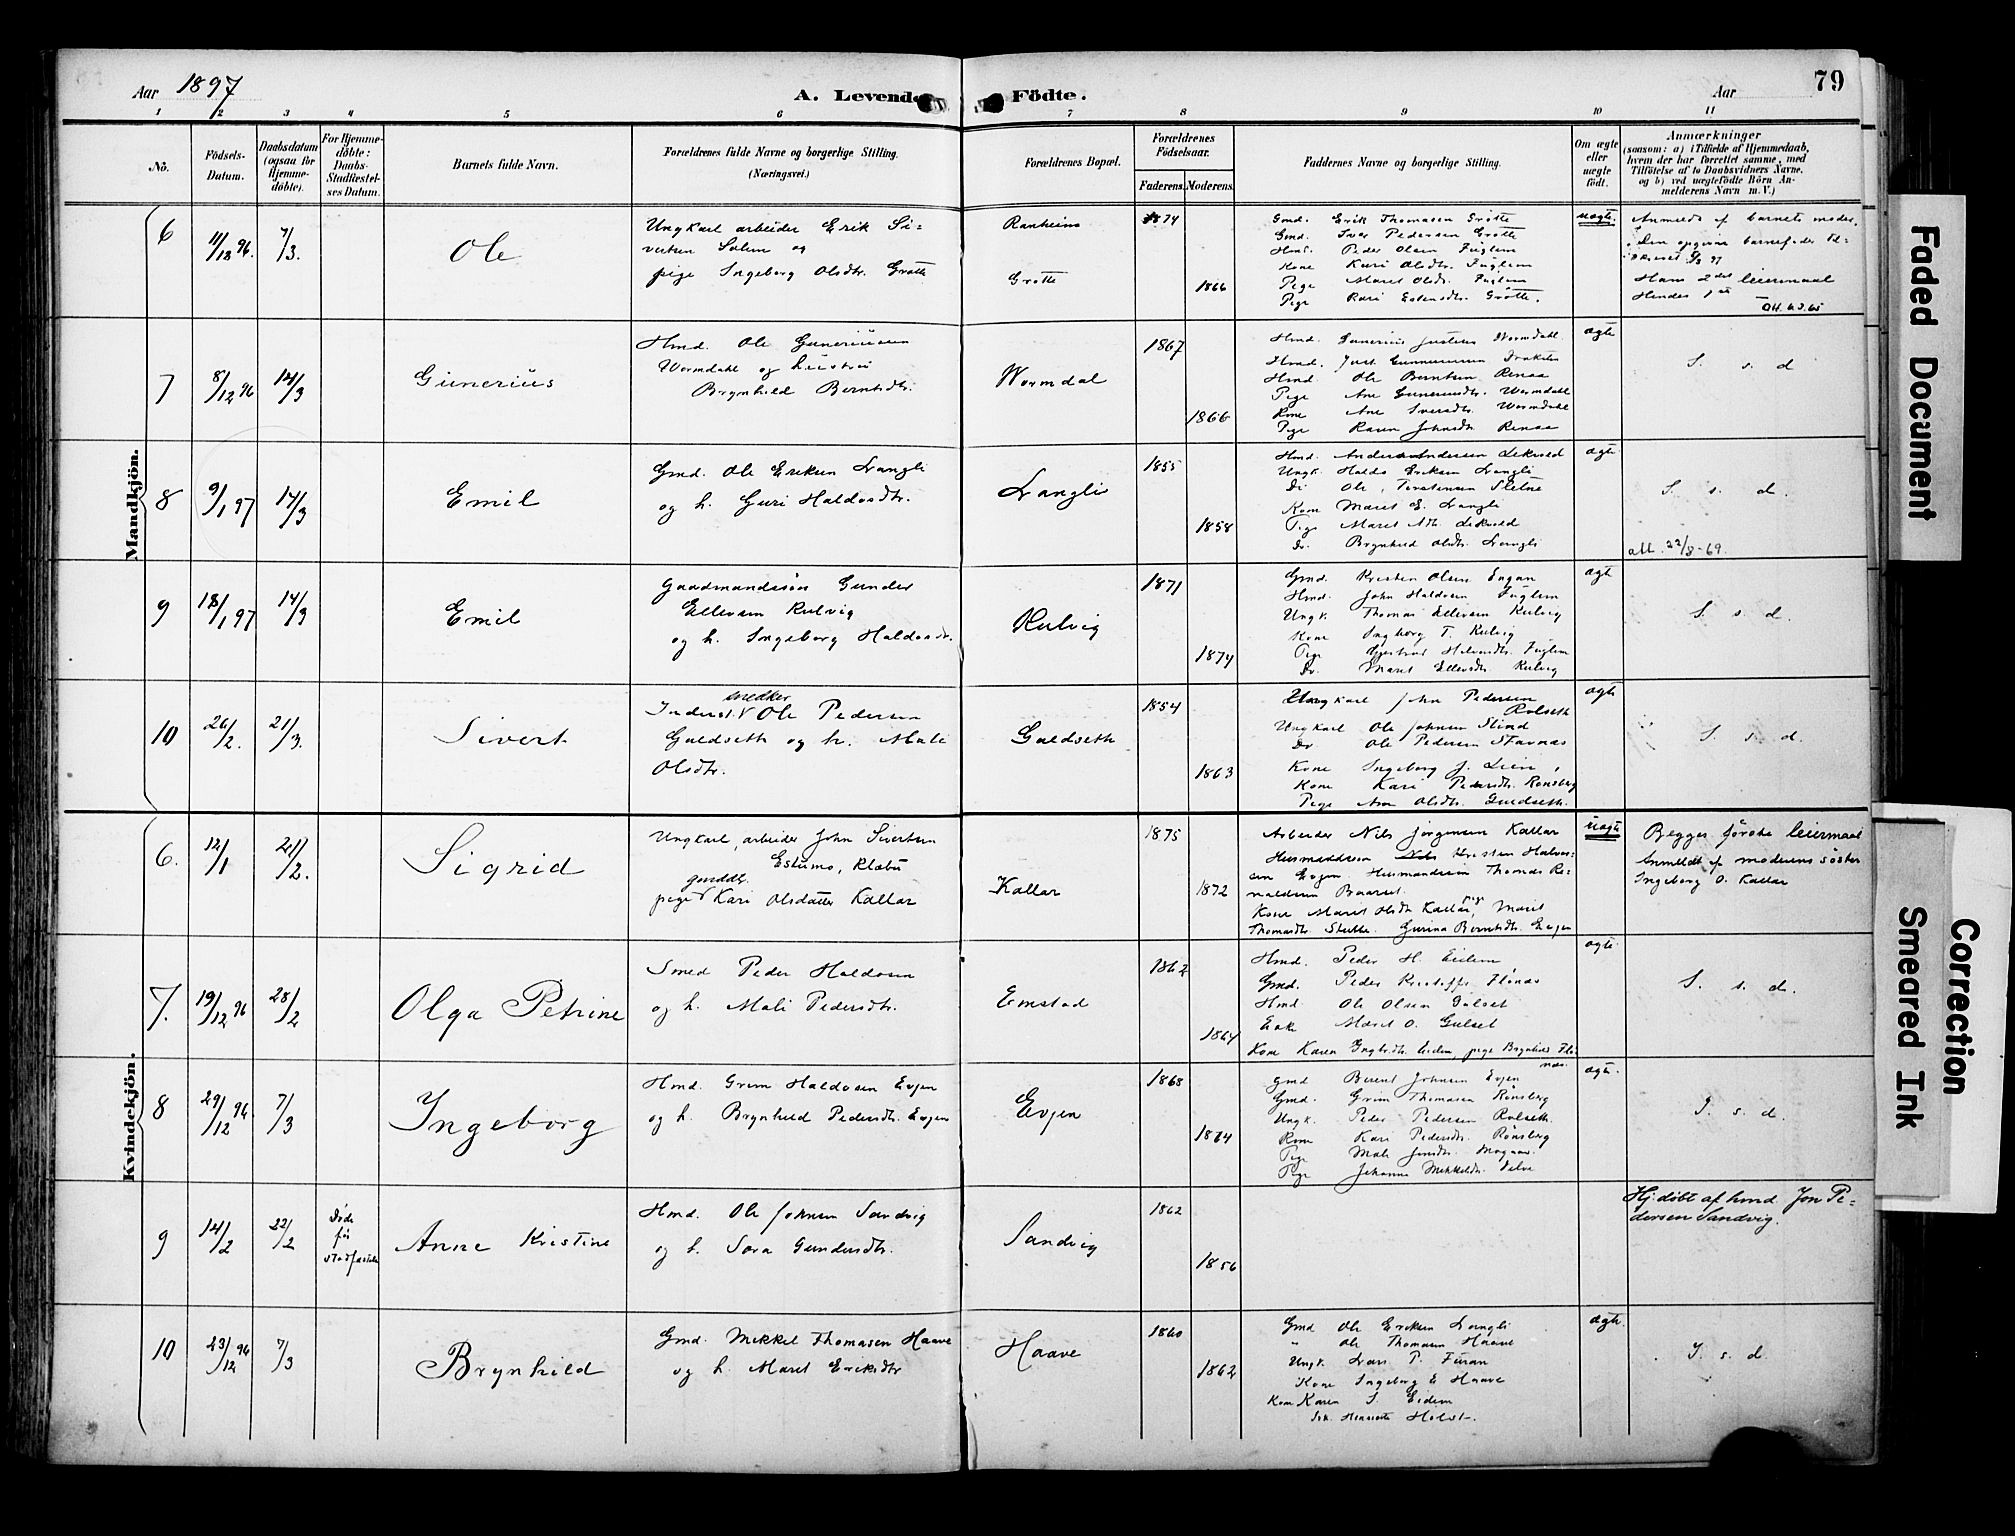 Aar 1897
A. Levend
Födte.
Aar
79
1 2 3 4 5 6 7 8 9 10 11
No.
Födsels-
Datum.
Daabsdatum
(ogsaa for
Hjemme-
döbte).
For Hjemme-
döbte:
Daabs-
Stadfæstel-
ses Datum.
Barnets fulde Navn.
Forældrenes fulde Navne og borgerlige Stilling.
(Næringsvei.)
Forældrenes Bopæl.
Forældrenes
Födselsaar.
Faderens. Moderens.
Faddernes Navne og borgerlige Stilling.
Om ægte
eller
uægte
födt.
Anmærkninger
(saasom: a) i Tilfælde af Hjemmedaab,
hvem der har forrettet samme, med
Tilföielse af to Daabsvidners Navne,
og b) ved uægtefödte Börn An-
melderens Navn m. V.)
Mandkjön.
6
11/12 96.
7/3.
Ole
Ungkarl arbeider Erik Si-
vertsen Solem og
pige Ingeborg Olsdtr. Grøtte
Ranheim
Grøtte
1874
1866
Gmd. Erik Thomasen Grøtte
Gmd. Iver Pedersen Grøtte
Hmd. Peder Olsen Fuglem
Kone Kari Olsdtr. Fuglem
Pige Marit Olsdtr. Fuglem
Pige Kari Estensdtr. Grøtte.
uægte.
Anmeldt af barnets moder.
Den opgivne barnefader til-
Hans 2det leiermaal
Hendes 1ste
7
8/12 96
14/3
Gunerius
Hmd. Ole Guneriusen
Wormdahl og hustru
Brynhild Berntsdtr.
Wormdal
1867
1866
Hmd. Gunerius Justesen Wormdahl
Hmd. Ole Berntsen Renaa
Pige Ane Guneriusdtr. Wormdahl
Kone Ane Sversdtr. Wormdahl
Pige Karen Johnsdtr Renaa
ægte
S. s. d
8
9/1 97
14/3
Emil
Gmd. Ole Eriksen Langli
og h. Guri Haldosdtr.
Langli
1855
1858
Hmd. Anders Andersen Lekvold
Ungk. Haldo Eriksen Langli
Do. Ole Torstensen Sletne
Kone Marit E. Langli
Pige Marit Lekvold
Do. Brynhild Olsdtr. Langli
ægte
S. s. d.
att. 22/8-69.
9
18/1 97
14/3
Emil
Gaardmandssøn Gunder
Ellevsen Kulvig
og h. Ingeborg Haldosdtr.
Kulvig
1871
1874
Gmd. Kristen Olsen Engan
Hmd. John Haldosen Fuglem
Ungk. Thomas Ellevsen Kulvig
Kone Ingeborg T. Kulvig
Pige Gjertrud Fuglem
Do. Marit Ellevsdtr. Kulvig
ægte
S. s. d.
10
26/2.
21/3.
Sivert
snedker
Inderst. v Ole Pedersen
Guldseth og h. Mali
Olsdtr.
Guldseth
1854
1863
Ungkarl John Pedersen
Rolseth
Ungkarl Ole Johnsen Stind
Do Ole Pedersen Stavnås
Kone Ingeborg J. Lien
Kone Kari Pedersdtr. Rønsberg
Pige Ane Olsdtr. Guldseth.
ægte
S. s. d.
Kvindekjön.
6.
12/1
21/2.
Sigrid
Ungkarl, arbeider John Sivertsen
Estumo, Klæbu
gaarddtr.
pige v Kari Olsdatter Kallar
Kallar
1875
1872
Arbeider Nils Jørgensen Kallar
Husmandssøn Kristen Halvor-
sen Evjen. Husmandssøn Thomas Re-
naldsen Baarset.
Kone Marit Olsdtr Kallar, pige Marit
Thomasdtr. Stubbe. Gurina Berntsdtr. Evjen
uægte
Begges første leiermaal
Anmeldt af moderens søster
Ingeborg O. Kallar
7.
19/12 96
28/2
Olga Petrine
Smed Peder Haldosen
og h. Mali Pedersdtr.
Emstad
1862
1864
Hmd. Peder H. Eidem
Gmd. Peder Kristoffs. Flønæs
Hmd Ole Olsen Gulset
Enke Marit O. Gulset
Kone Karen Eidem, pige Brynhild Flø-
næs.
ægte.
S. s. d.
8
29/12 96
7/3
Ingeborg
Hmd. Grim Haldosen Evjen
og h. Brynhild Pedersdtr. Evjen
Evjen
1868
1874
Gmd Berent Johnsen Evjen
Gmd. Grim Thomasen Rønsberg
Ungk. Peder Pedersen Rolseth
Kone Kari Pedersdtr. Rønsberg
Pige Mali Jensdtr. Mogaas.
Pige Johanna Mikkelsdtr. Velve
ægte.
S. s. d.
9
14/2
22/2
Døde
før
stadfæstelse
Anne Kristine
Hmd. Ole Johnsen Sandvig
og h. Sara Gundersdtr.
Sandvig
1862
1856
Hj. døbt af hmd Jon Pe-
dersen Sandvig.
10
23/12 96
7/3
Brynhild
Gmd. Mikkel Thomasen Haave
og h. Marit Eriksdtr
Haave
1860
1862
Gmd Ole Eriksen Langli
" Ole Thomasen Haave
Ungk. Lars P. Furan
Kone Ingeborg E Haave
Kone Karen S. Eidem
Frk. Henriette Holst.
ægte.
S. s. d.
Faded Document
Correction
Smeared Ink